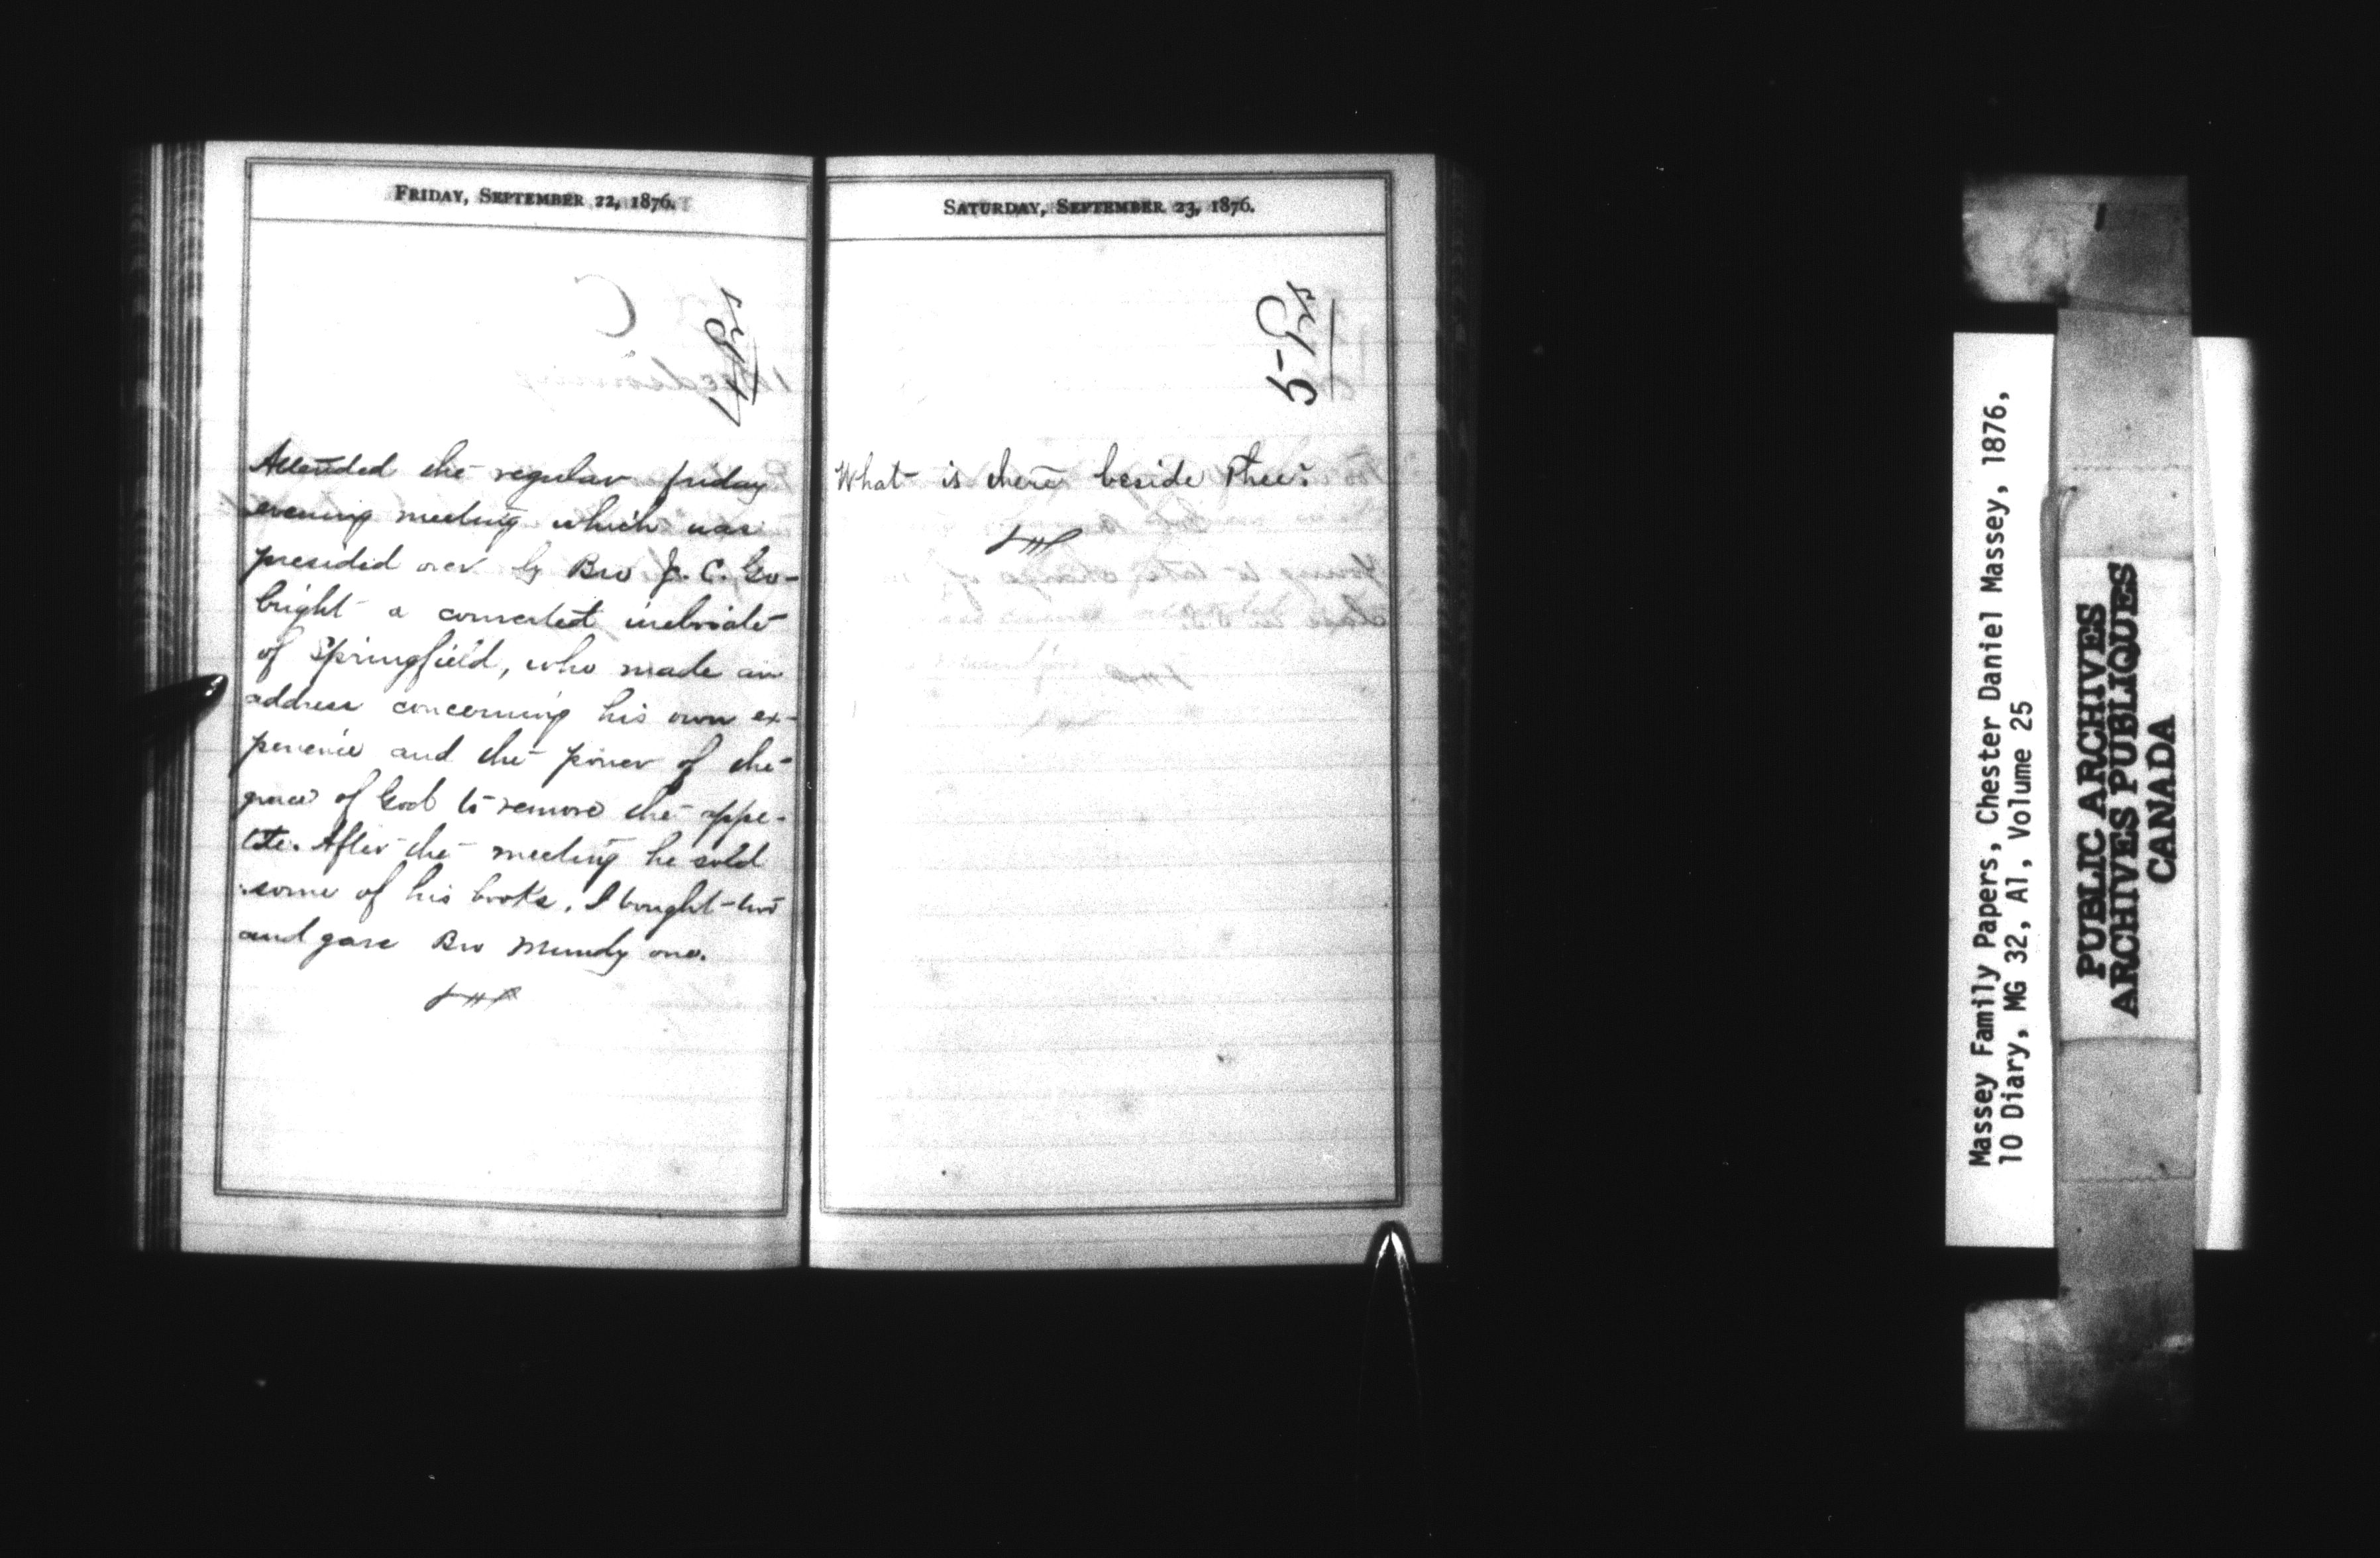 FRIDAY, SEPTEMBER 22, 1876.
Attended the regular friday
evening meeting which was
presided over by Bro J. C. Go-
bright a converted inebriate
of Springfield, who made an
address concerning his own ex-
perience and the power of the
grace of God to remove the appe-
tite. After the meeting he sold
some of his books. I bought two
and gave Bro Mundy one.
SATURDAY, SEPTEMBER 23, 1876.
5-Prs
What is there beside Thee?
Massey Family Papers, Chester Daniel Massey, 1876,
10 Diary, MG 32, A1, Volume 25
PUBLIC ARCHIVES
ARCHIVES PUBLIQUES
CANADA